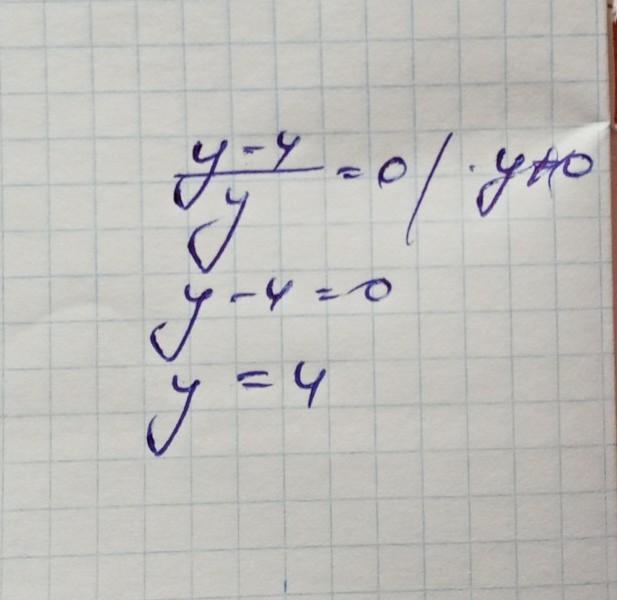 y-4/y = 0 / · y≠0
y-4=0
y = 4